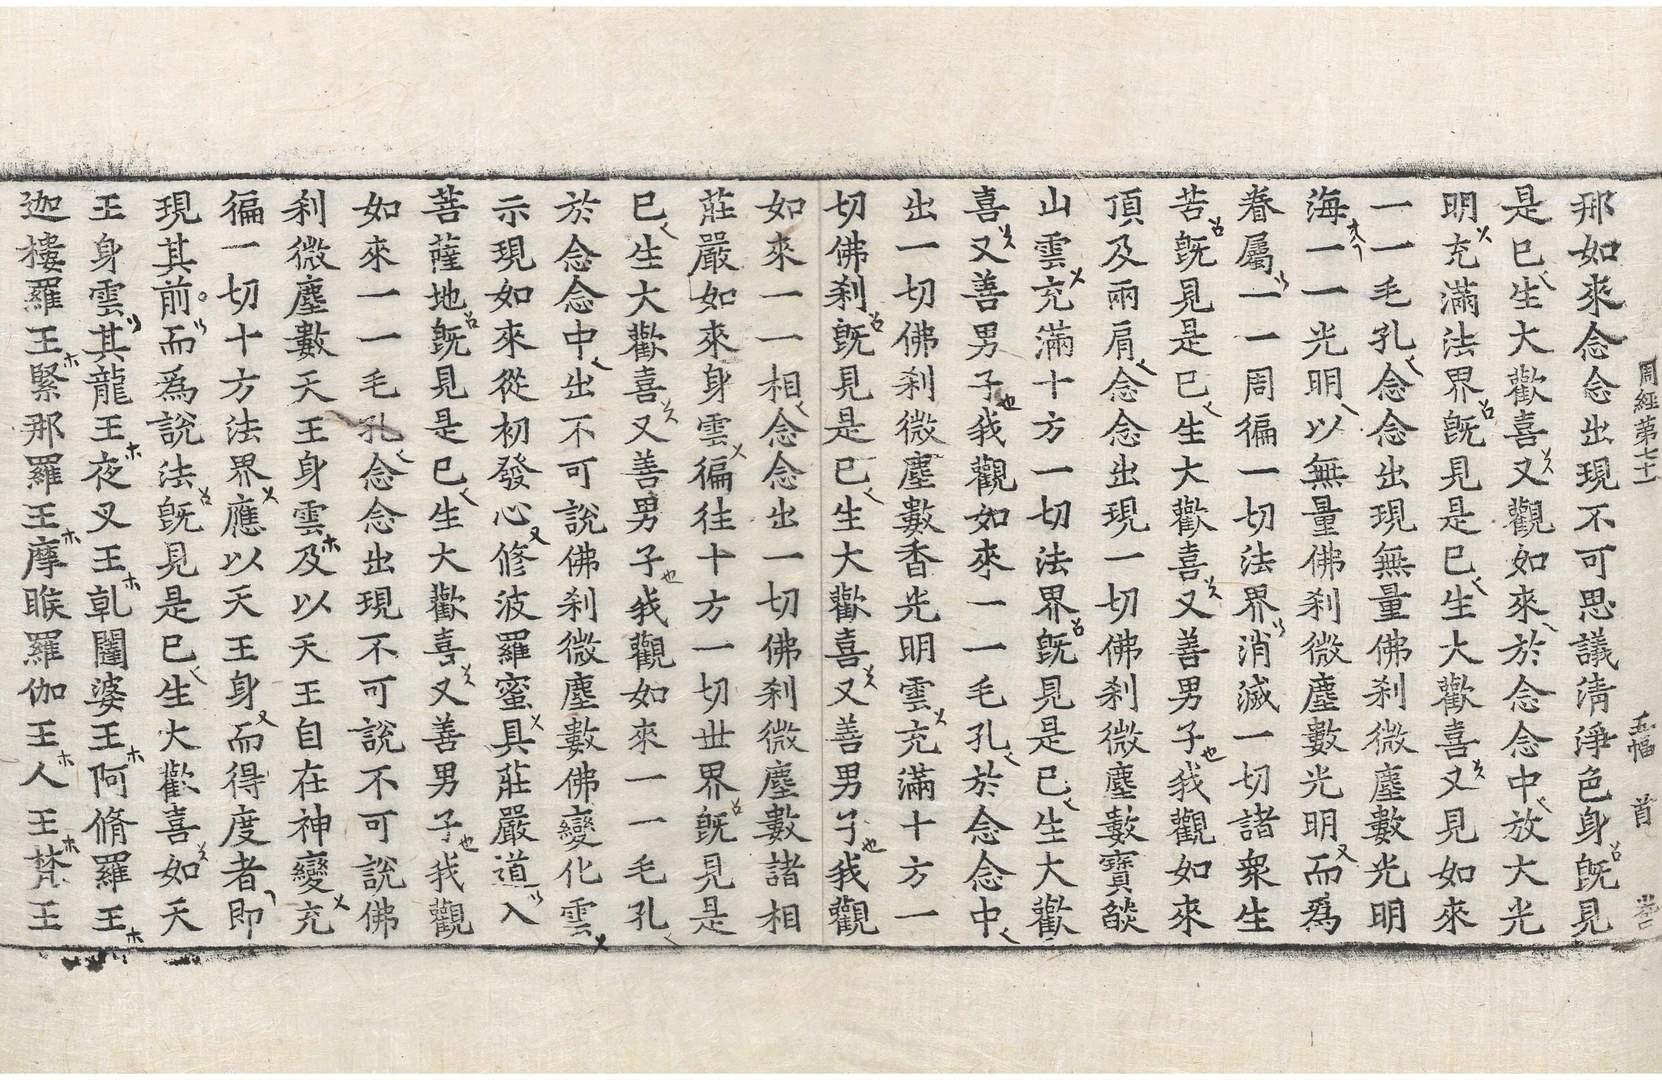 周經第七十一 五幅 首
那如來念念出現不可思議淸淨色身旣見
是已生大歡喜又觀如來於念念中放大光
明充滿法界旣見是已生大歡喜又見如來
一一毛孔念念出現無量佛刹微塵數光明
海一一光明以無量佛刹微塵數光明而爲
眷屬一一周徧一切法界消滅一切諸衆生
苦旣見是已生大歡喜又善男子我觀如來
頂及兩肩念念出現一切佛刹微塵數寶𦦨
山雲充滿十方一切法界旣見是已生大歡
喜又善男子我觀如來一一毛孔於念念中
出一切佛刹微塵數香光明雲充滿十方一
切佛刹旣見是已生大歡喜又善男子我觀
如來一一相念念出一切佛刹微塵數諸相
莊嚴如來身雲徧往十方一切世界旣見是
已生大歡喜又善男子我觀如來一一毛孔
於念念中出不可說佛刹微塵數佛變化雲
示現如來從初發心修波羅蜜具莊嚴道入
菩薩地旣見是已生大歡喜又善男子我觀
如來一一毛孔念念出現不可說不可說佛
刹微塵數天王身雲及以天王自在神變充
徧一切十方法界應以天王身而得度者卽
現其前而爲說法旣見是已生大歡喜如天
王身雲其龍王夜叉王乹闥婆王阿脩羅王
迦樓羅王緊那羅王摩睺羅伽王人王梵王